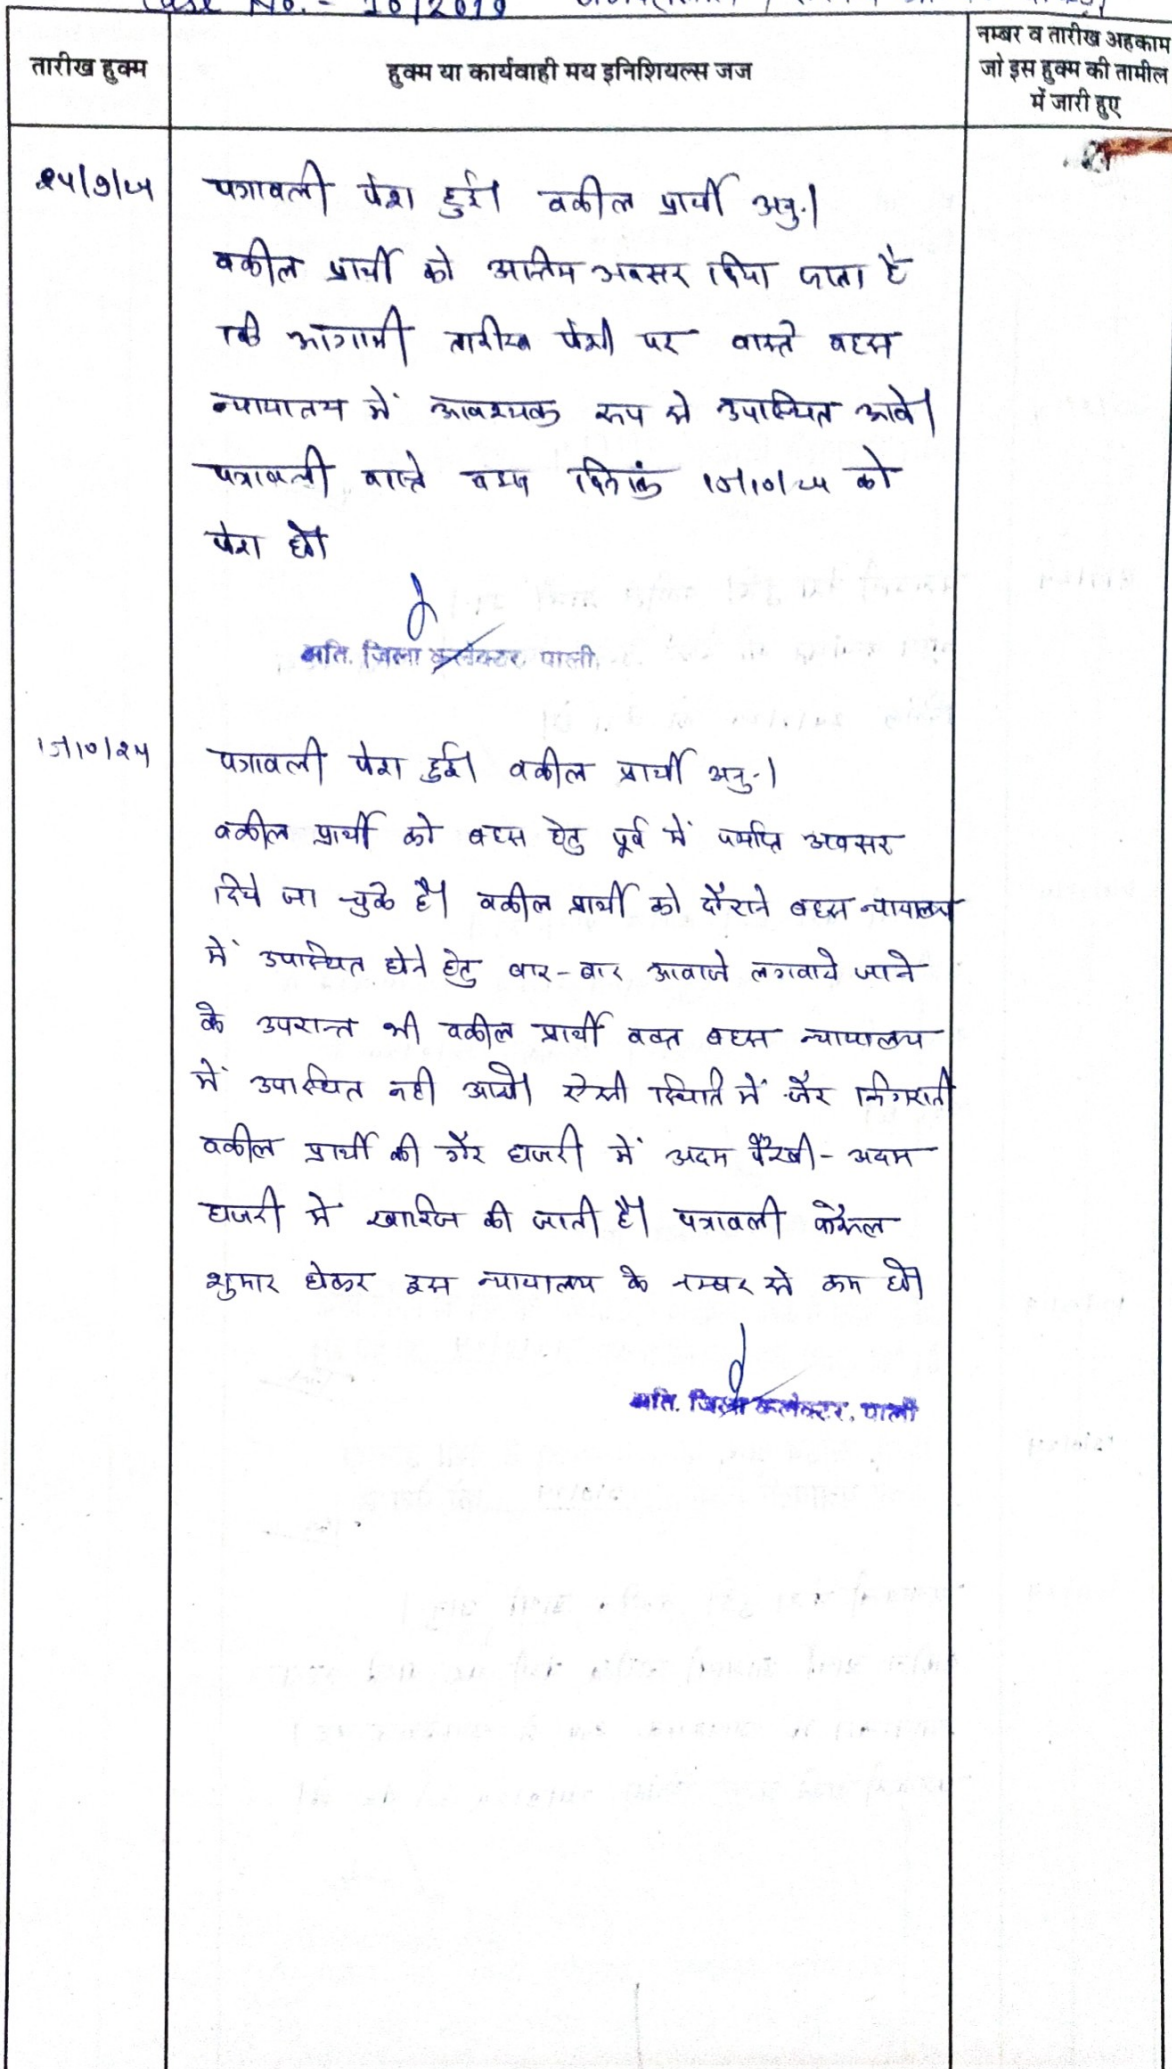 Case No. - 20/2019
तारीख हुक्म
हुक्म या कार्यवाही मय इनिशियल्स जज
नम्बर व तारीख अहकाम
जो इस हुक्म की तामील
में जारी हुए
पत्रावली पेश हुई। वकील प्रार्थी अनु.।
वकील प्रार्थी को अन्तिम अवसर दिया जाता है
कि आगामी तारीख पेशी पर वास्ते बहस
न्यायालय में आवश्यक रूप से उपस्थित आवे।
पत्रावली वास्ते बहस दिनांक को
पेश हो।
अति. जिला कलेक्टर पाली
पत्रावली पेश हुई। वकील प्रार्थी अनु.।
वकील प्रार्थी को बहस हेतु पूर्व में पर्याप्त अवसर
दिये जा चुके है। वकील प्रार्थी को दौराने बहस न्यायालय
में उपस्थित होने हेतु बार-बार आवाजे लगवाये जाने
के उपरान्त भी वकील प्रार्थी वक्त बहस न्यायालय
में उपस्थित नही आये। ऐसी स्थिति में जैर निगरानी
वकील प्रार्थी की गैर हाजरी में अदम पैरवी - अदम
हाजरी में खारिज की जाती है। पत्रावली फैसल
शुमार होकर इस न्यायालय के नम्बर से कम हो।
अति. जिला कलेक्टर, पाली